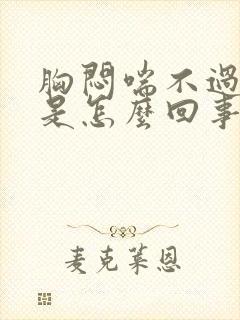 胸悶喘不過
是怎麼回事
麦克莱恩